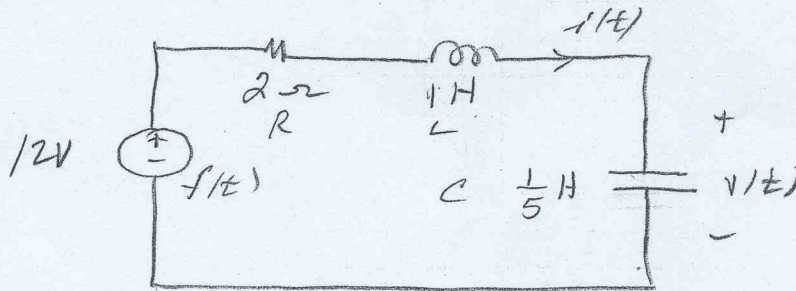 i(t)
2 Ω
R
1 H
L
12V
+
-
f(t)
C
1/5 H
+
v(t)
-